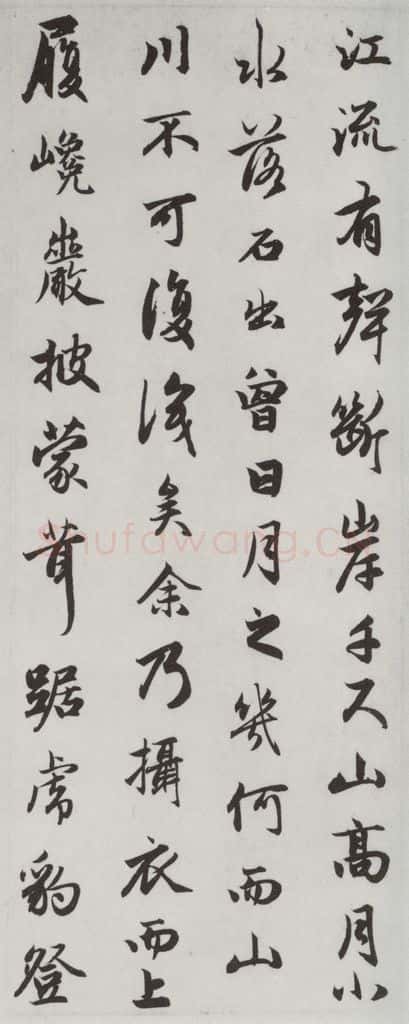 江流有聲斷岸千尺山高月小
水落石出曾日月之幾何而山
川不可復識矣余乃攝衣而上
履巉巖披蒙茸踞虎豹登
Shufawang.cn